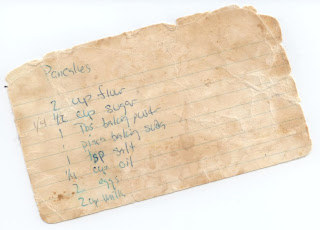 Pancakes
2 cup flour
1/4 1/2 cup sugar
1 Tbs baking powd
pinch baking soda
1 tsp salt
1/4 cup oil
2 eggs
2 cup milk